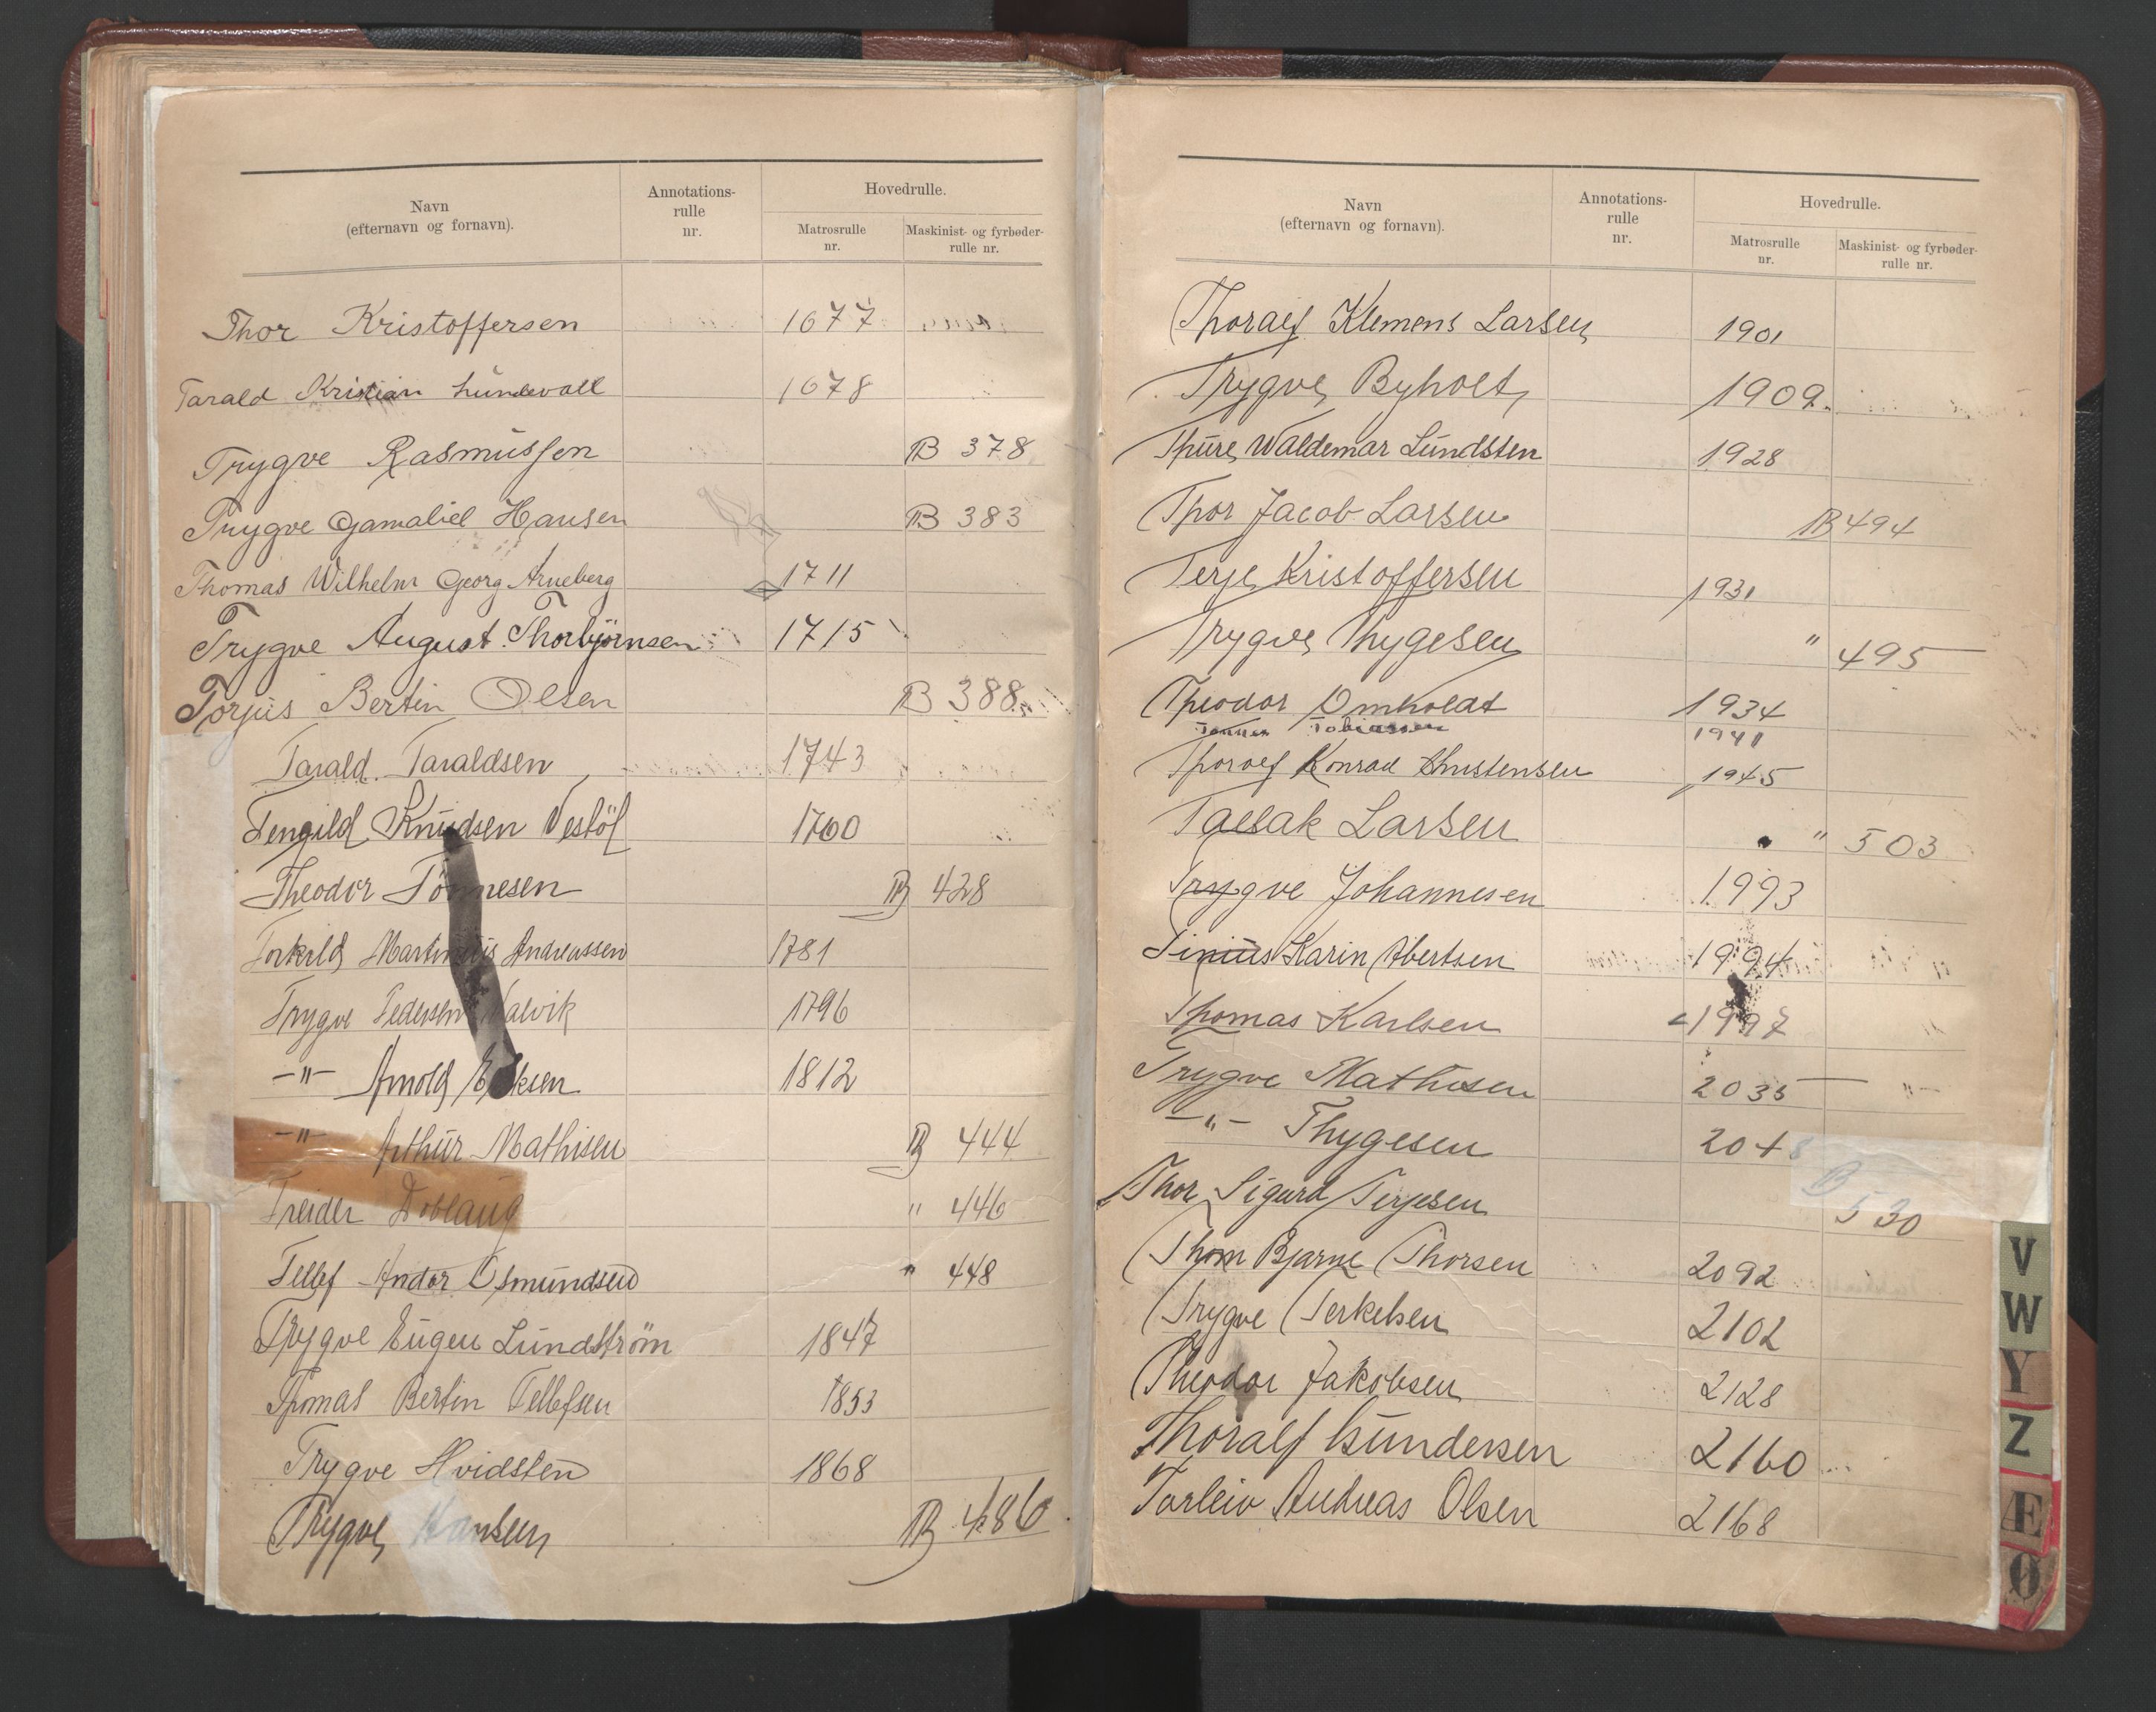 Navn
(efternavn og fornavn).
Annotations-
rulle
nr.
Hovedrulle.
Matrosrulle
nr.
Maskinist- og fyrbøder-
rulle nr.
Thor Kristoffersen 1677
Tarald Kristian Lundevall 1678
Trygve Rasmussen B 378
Trygve Gamaliel Hansen B 383
Thomas Wilhelm Georg Arneberg 1711
Trygve August Thorbjörnsen 1715
Torjus Bertin Olsen B 388
Tarald Taraldsen 1743
Tengild Knudsen Vestöl 1760
Theodor Tönnesen B 428
Torkild Martinius Andreassen 1781
Trygve Pedersen 1796
-"- Arnold Eriksen 1812
-"- Arthur Mathisen B 444
Treider Doblaug " 446
Tellef Andor Osmundsen " 448
Trygve Eugen Lundström 1847
Thomas Bertin Tellefsen 1853
Trygve Hvidsten 1868
Trygve Hansen B 486
Navn
(efternavn og fornavn).
Annotations-
rulle
nr.
Hovedrulle.
Matrosrulle
nr.
Maskinist- og fyrbøder-
rulle nr.
Thoralf Klemens Larsen 1901
Trygve Byholt 1909.
Thure Waldemar Lundsten 1928
Thor Jacob Larsen B 494
Terje Kristoffersen 1931
Trygve Thygesen " 495
Theodor Omholdt 1934
Tobiassen 1941
Thoralf Konrad Christensen 1945
Taelak Larsen " 503
Trygve Johannesen 1993
Tinius Karin Abertsen 1994
Thomas Karlsen 1997
Trygve Mathisen 2035 "
-"- Thygesen 2048
Thor Sigurd Terjesen B 530
Thom Bjarne Thorsen 2092
Trygve Terkelsen 2102
Theodor Jakobsen 2128
Thoralf Gundersen 2160
Torleiv Andreas Olsen 2168
V
W
Y
Z
Æ
Ø